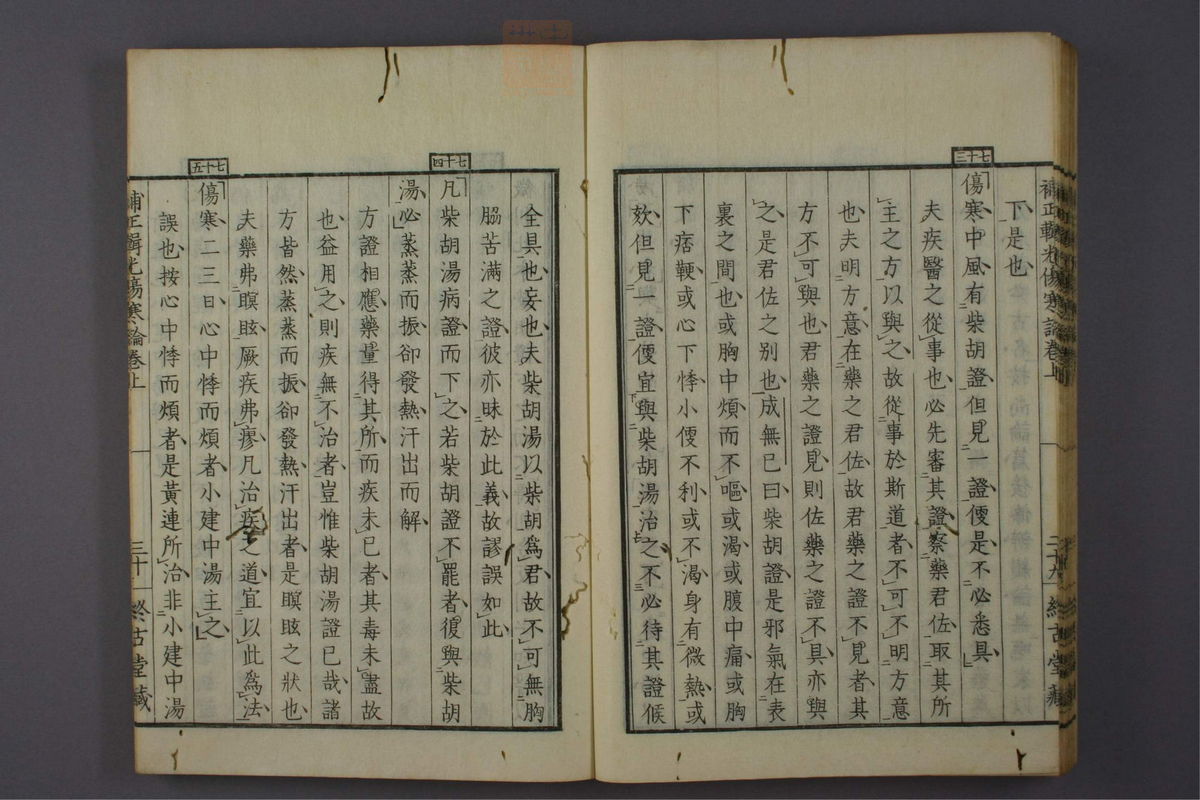 補正輯光傷寒論卷上
終古堂藏
下是也
七十三
傷寒中風有柴胡證但見一證便是不必悉具
夫疾醫之從事也必先審其證察藥君佐取其所
主之方以與之故從事於斯道者不可不明方意
也夫明方意在藥之君佐故君藥之證不見者其
方不可與也君藥之證見則佐藥之證不具亦與
之是君佐之別也成無已曰柴胡證是邪氣在表
裏之間也或胸中煩而不嘔或渴或腹中痛或胸
下痞鞕或心下悸小便不利或不渴身有微熱或
欬但見一證便宜與柴胡湯治之不必待其證候
全具也妄也夫柴胡湯以柴胡爲君故不可無胸
脇苦滿之證彼亦昧於此義故謬誤如此
七十四
凡柴胡湯病證而下之若柴胡證不罷者復與柴胡
湯必蒸蒸而振卻發熱汗出而解
方證相應藥量得其所而疾未已者其毒未盡故
也益用之則疾無不治者豈惟柴胡湯證已哉諸
方皆然蒸蒸而振卻發熱汗出者是瞑眩之狀也
夫藥弗瞑眩厥疾弗瘳凡治疾之道宜以此爲法
七十五
傷寒二三日心中悸而煩者小建中湯主之
誤也按心中悸而煩者是黃連所治非小建中湯
補正輯光傷寒論卷上
三十一
終古堂藏